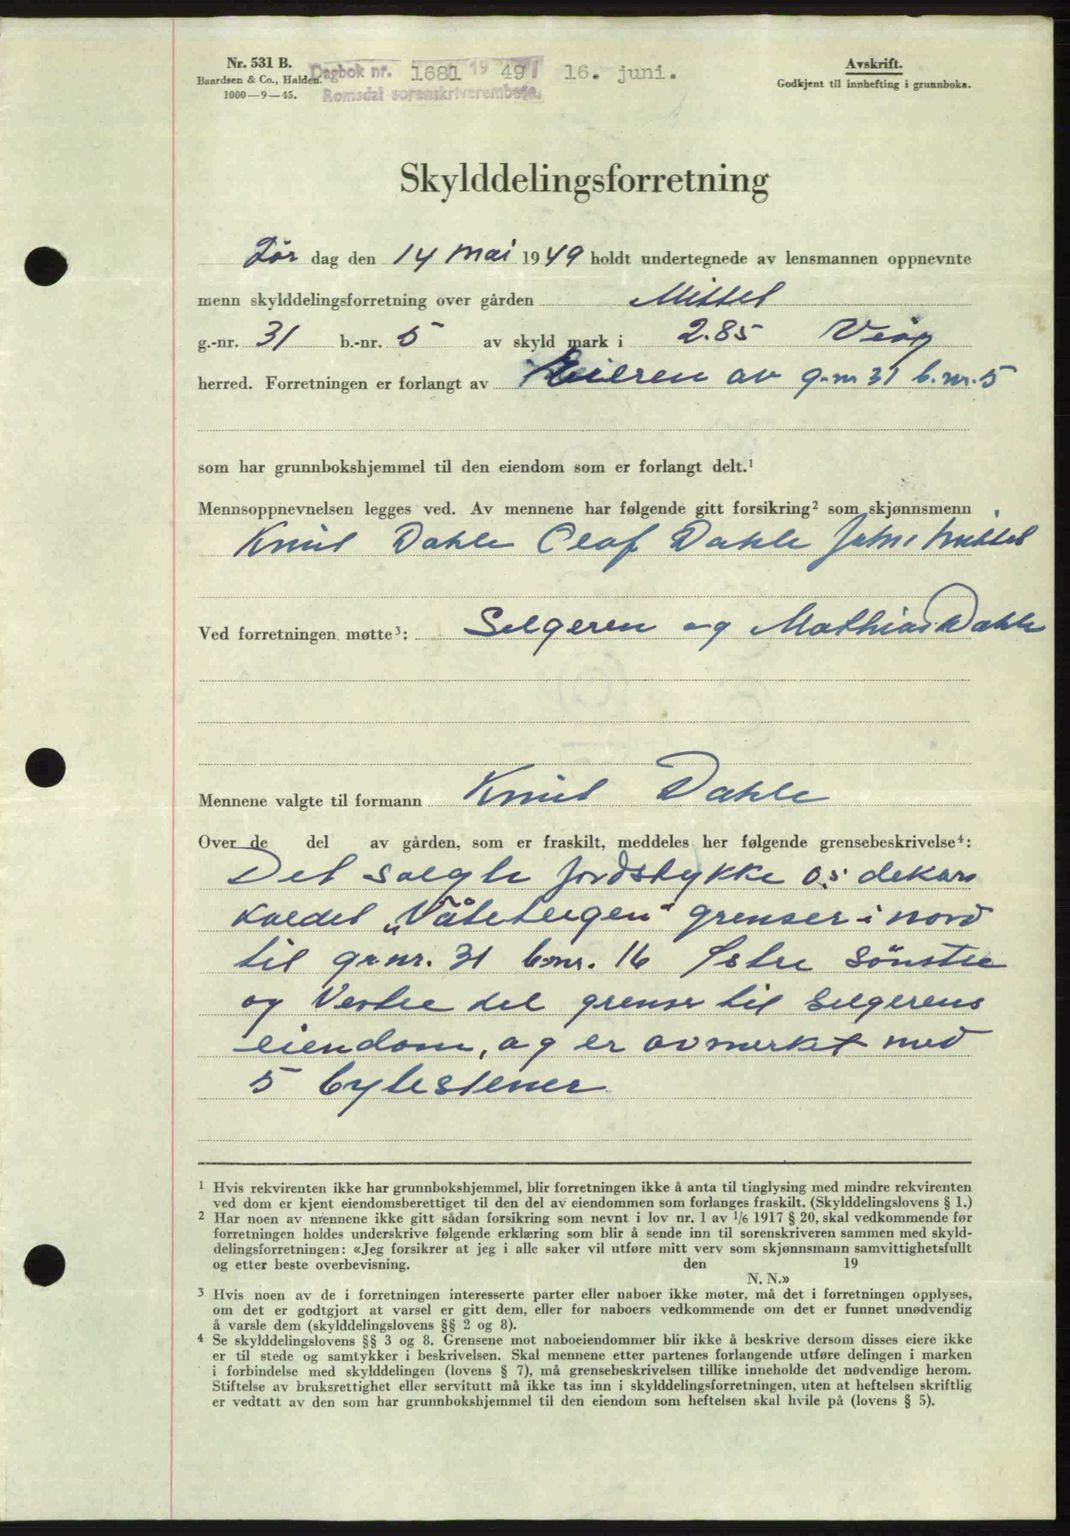 Nr. 531 B.
Baardsen & Co., Halden.
1000—9—45.
Dagbok nr. 1681 1949 16. juni.
Romsdal sorenskriverembete.
Avskrift.
Godkjent til innhefting i grunnboka.
Skylddelingsforretning
Lør dag den 14 mai 1949 holdt undertegnede av lensmannen oppnevnte
menn skylddelingsforretning over gården Mittet
g.-nr. 31 b.-nr. 5 av skyld mark i 2.85 Veøy
herred. Forretningen er forlangt av Eieren av g.nr 31 b.nr. 5
som har grunnbokshjemmel til den eiendom som er forlangt delt.¹
Mennsoppnevnelsen legges ved. Av mennene har følgende gitt forsikring² som skjønnsmenn
Knut Dahle Olaf Dahle John Mittet
Ved forretningen møtte³: Selgeren og Mathias Dahle
Mennene valgte til formann Knut Dahle
Over de del av gården, som er fraskilt, meddeles her følgende grensebeskrivelse⁴:
Det solgte jordstykke 0.5 dekar
kaldet „Våteteigen“ grenser i nord
til g.nr. 31 b.nr. 16 Østre Sønstre
og Vestre del grenser til selgerens
eiendom, og er avmerket med
5 bytestener
¹ Hvis rekvirenten ikke har grunnbokshjemmel, blir forretningen ikke å anta til tinglysing med mindre rekvirenten
ved dom er kjent eiendomsberettiget til den del av eiendommen som forlanges fraskilt. (Skylddelingslovens § 1.)
² Har noen av mennene ikke gitt sådan forsikring som nevnt i lov nr. 1 av 1/6 1917 § 20, skal vedkommende før
forretningen holdes underskrive følgende erklæring som blir å sende inn til sorenskriveren sammen med skyld-
delingsforretningen: «Jeg forsikrer at jeg i alle saker vil utføre mitt verv som skjønnsmann samvittighetsfullt
og etter beste overbevisning. den 19
N. N.»
³ Hvis noen av de i forretningen interesserte parter eller naboer ikke møter, må det i forretningen opplyses,
om det er godtgjort at varsel er gitt dem, eller for naboers vedkommende om det er funnet unødvendig
å varsle dem (skylddelingslovens §§ 2 og 8).
⁴ Se skylddelingslovens §§ 3 og 8. Grensene mot naboeiendommer blir ikke å beskrive dersom disses eiere ikke
er til stede og samtykker i beskrivelsen. Skal mennene etter partenes forlangende utføre delingen i marken
i forbindelse med skylddelingen (lovens § 7), må grensebeskrivelsen tillike inneholde det nødvendige herom.
Stiftelse av bruksrettighet eller servitutt må ikke tas inn i skylddelingsforretningen, uten at heftelsen skriftlig
er vedtatt av den som har grunnbokshjemmel til den eiendom som heftelsen skal hvile på (lovens § 5).